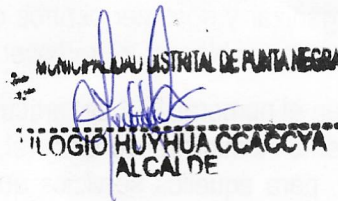 MUNICIPALIDAD DISTRITAL DE PUNTA NEGRA
ULOGIO HUYHUA CCACCYA
ALCALDE